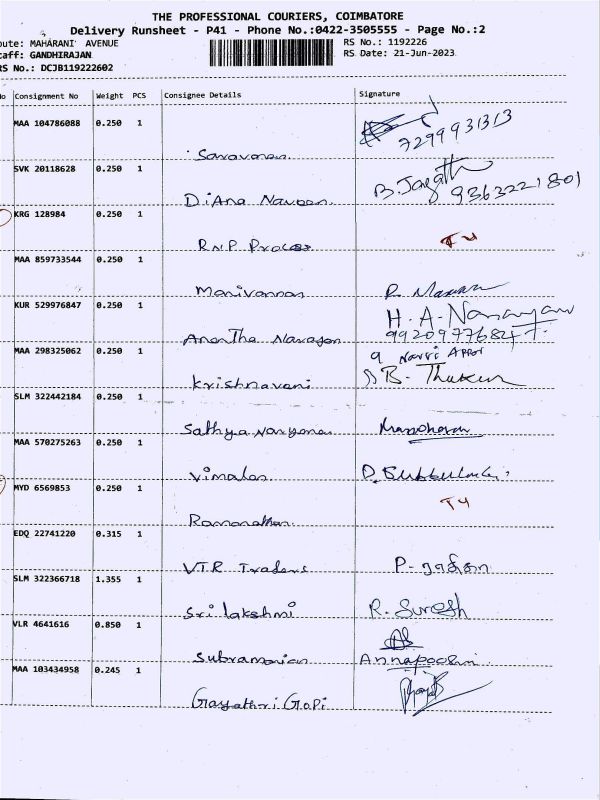 THE PROFESSIONAL COURIERS, COIMBATORE
Delivery Runsheet - P41 - Phone No.:0422-3505555 - Page No.:2
oute: MAHARANI AVENUE
RS No.: 1192226
taff: GANDHIRAJAN
RS Date: 21-Jun-2023
RS No.: DCJB119222602
No Consignment No Weight PCS Consignee Details Signature
MAA 104786088 0.250 1
Saravanan 7299931313
SVK 20118628 0.250 1 B. Jagath
Diana Naveen 9363221801
KRG 128984 0.250 1
RNP Process
MAA 859733544 0.250 1
Manivannan
KUR 529976847 0.250 1 H. A. Narayan
Anantha Narayan
MAA 298325062 0.250 1
Krishnavani B. Thukun
SLM 322442184 0.250 1
Sathya Narayanan Manoharan
MAA 570275263 0.250 1
Vimalan
MYD 6569853 0.250 1
Ramanathan
EDQ 22741220 0.315 1
VTR Traders
SLM 322366718 1.355 1
Sri lakshmi R. Suresh
VLR 4641616 0.850 1
Subramanian Annapoorni
MAA 103434958 0.245 1
Gayathri Gopi